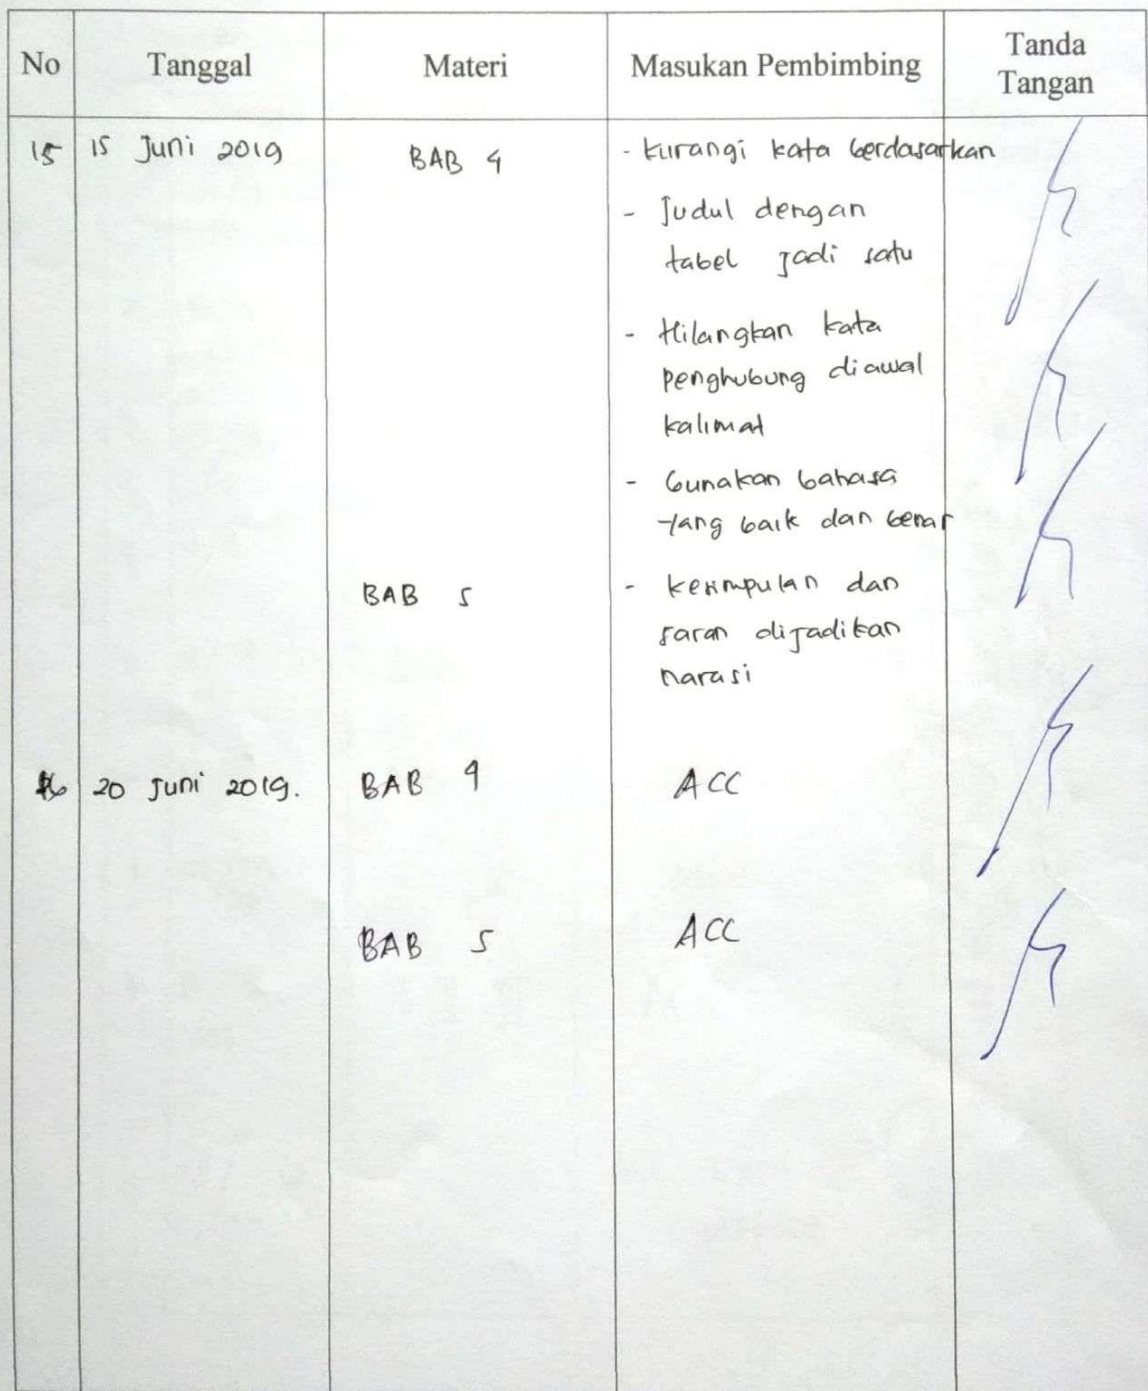 No Tanggal Materi Masukan Pembimbing Tanda
Tangan
15 15 Juni 2019 BAB 4 - kurangi kata berdasarkan
- Judul dengan
tabel jadi satu
- Hilangkan kata
penghubung diawal
kalimat
- Gunakan bahasa
yang baik dan benar
BAB 5 - kesimpulan dan
saran dijadikan
narasi
16 20 Juni 2019. BAB 4 ACC
BAB 5 ACC